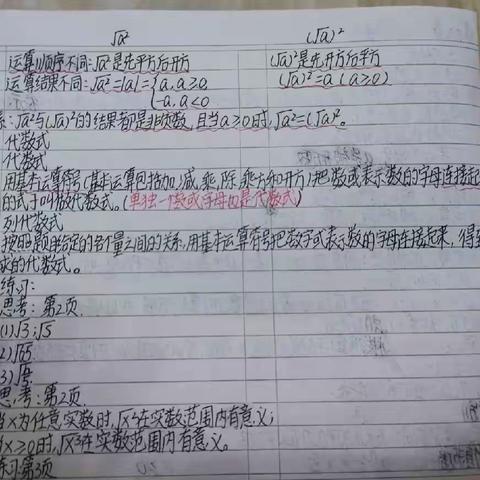 √a² (√a)²
运算顺序不同:√a²是先平方后开方 (√a)²是先开方后平方
运算结果不同:√a²=|a|={a,a≥0 -a,a<0 (√a)²=a(a≥0)
系:√a²与(√a)²的结果都是非负数,且当a≥0时,√a²=(√a)²。
代数式
代数式
用基本运算符号(基本运算包括加、减、乘、除、乘方和开方)把数或表示数的字母连接起
的式子叫做代数式。(单独一个数或字母也是代数式)
列代数式
按照题目给定的各个量之间的关系,用基本运算符号把数字或表示数的字母连接起来,得到
求的代数式。
练习:
思考:第2页
(1)√3;√5
2)√65
3)
思考:第2页
当x为任意实数时,√x²在实数范围内有意义;
当x≥0时,√x³在实数范围内有意义。
练习第3页